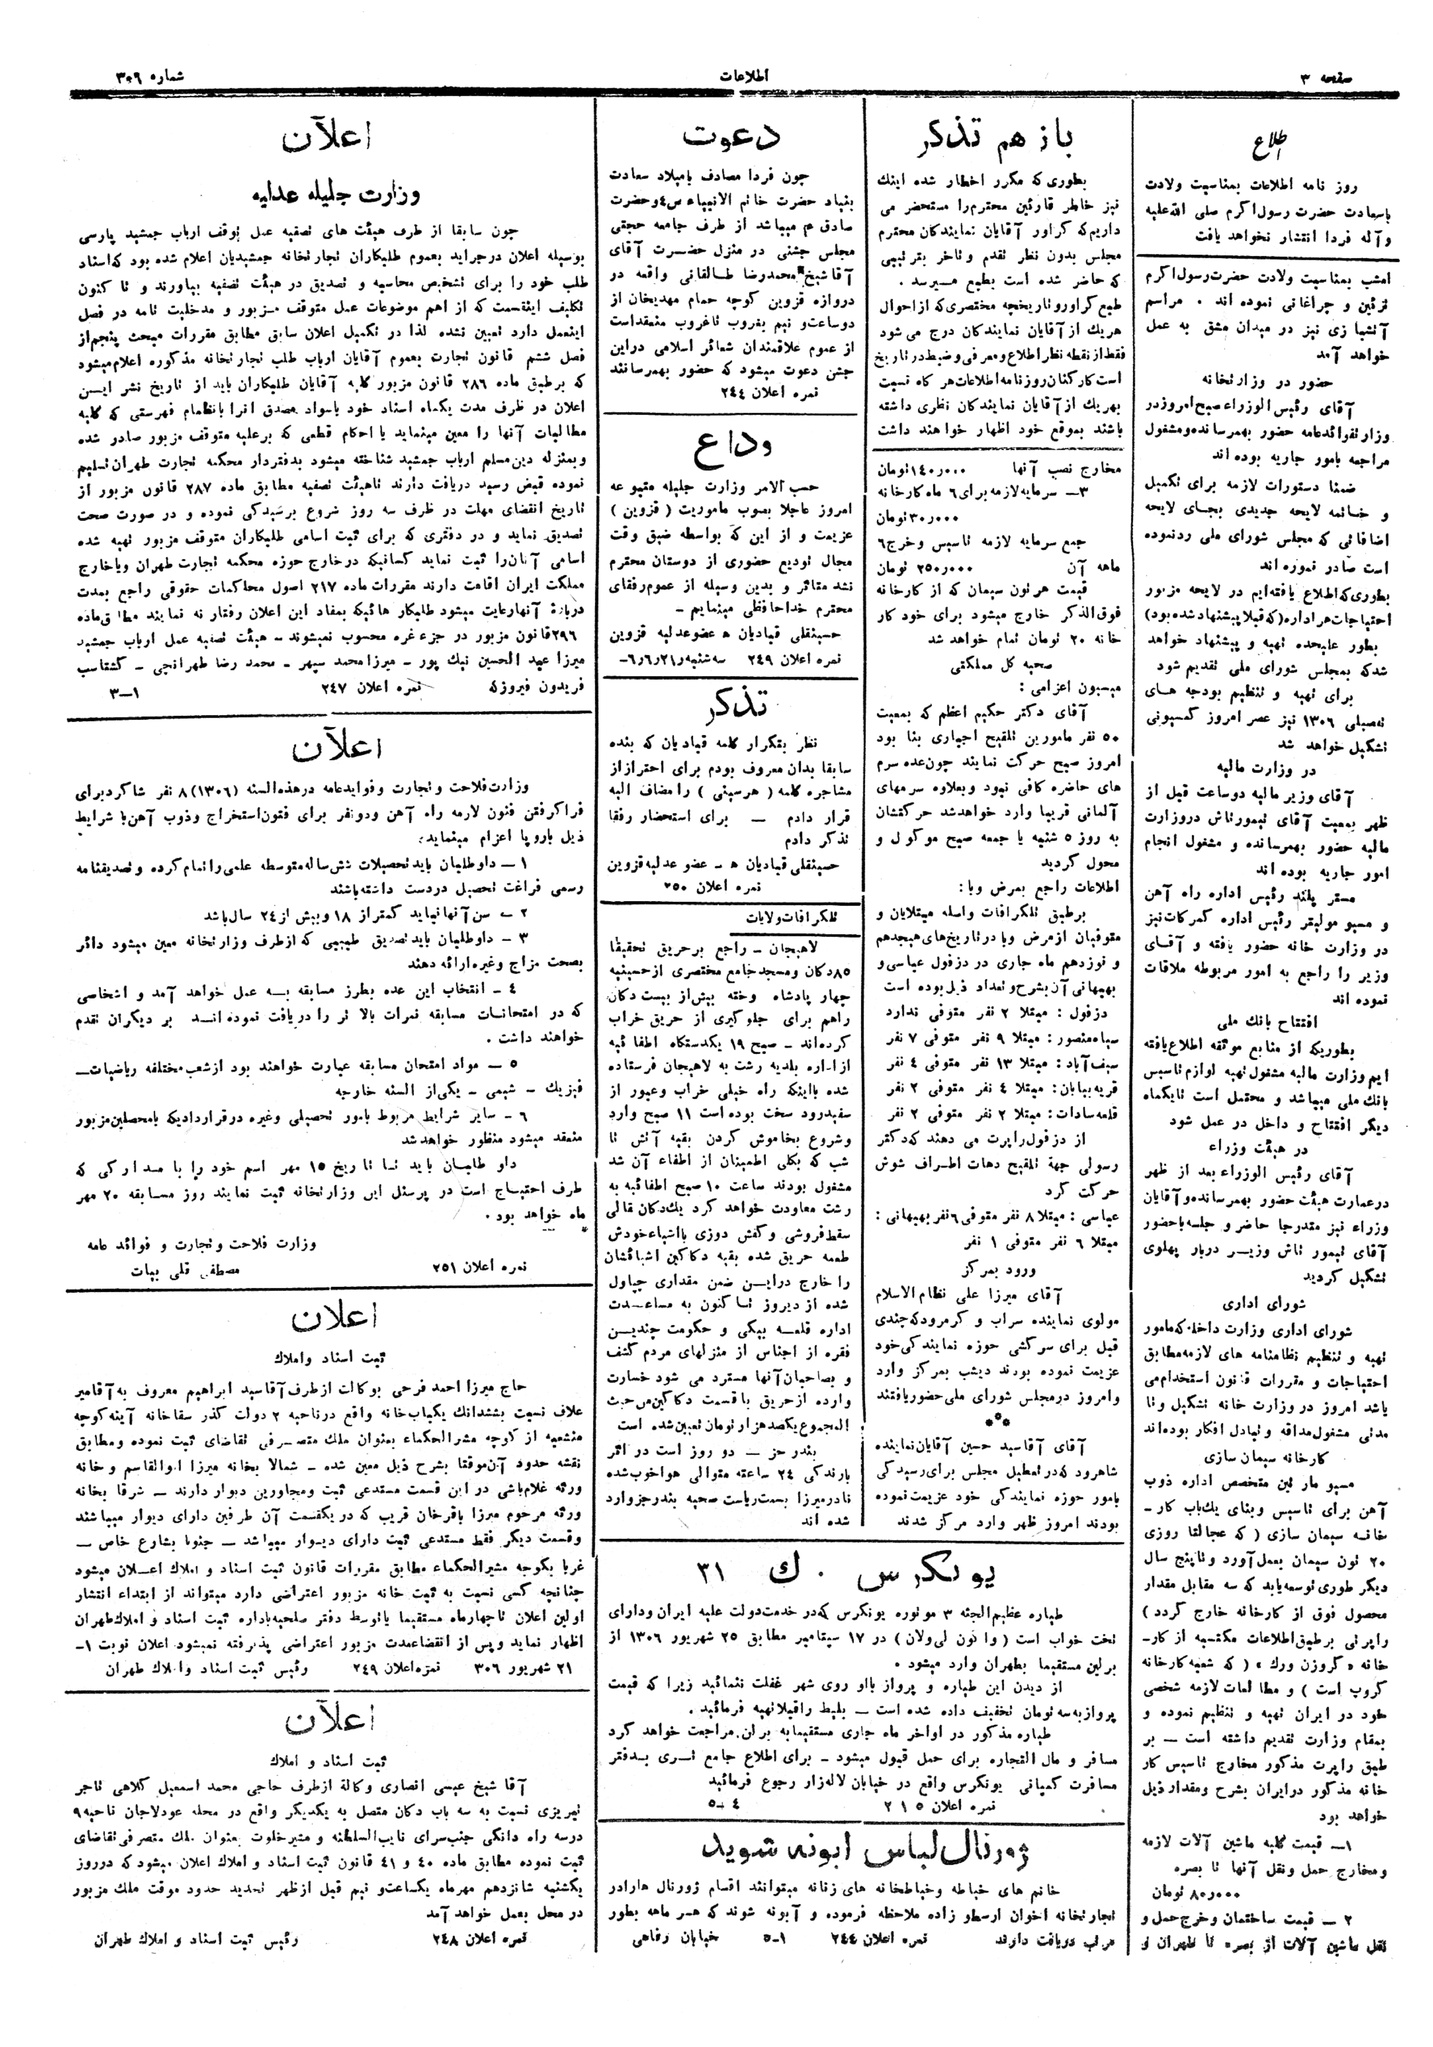 صفحه ۳
اطلاعات
شماره ۳۰۶
اطلاع
روز نامه اطلاعات بمناسبت ولادت
باسعادت حضرت رسول اکرم صلی الله علیه
و آله فردا انتشار نخواهد یافت
امشب بمناسبت ولادت حضرت رسول اکرم
تزئین و چراغانی نموده اند . مراسم
آتشبازی نیز در میدان مشق به عمل
خواهد آمد
حضور در وزارتخانه
آقای رئیس الوزراء صبح امروز در
وزارتفوائدعامه حضور بهمرسانده ومشغول
مراجعه بامور جاریه بوده اند
ضمنا دستورات لازمه برای تکمیل
و خاتمه لایحه جدیدی بجای لایحه
اضافاتی که مجلس شورای ملی ردنموده
است صادر نموده اند
بطوری که اطلاع یافته ایم در لایحه مزبور
احتیاجات هر اداره (که قبلا پیشنهاد شده بود)
بطور علیحده تهیه و پیشنهاد خواهد
شد که بمجلس شورای ملی تقدیم شود
برای تهیه و تنظیم بودجه های
تفصیلی ۱۳۰۶ نیز عصر امروز کمیسیونی
تشکیل خواهد شد
در وزارت مالیه
آقای وزیر مالیه دوساعت قبل از
ظهر بمعیت آقای تیمورتاش در وزارت
مالیه حضور بهمرسانده و مشغول انجام
امور جاریه بوده اند
مستر پلند رئیس اداره راه آهن
و مسیو مولیتر رئیس اداره گمرکات نیز
در وزارت خانه حضور یافته و آقای
وزیر را راجع به امور مربوطه ملاقات
نموده اند
افتتاح بانك ملی
بطوریکه از منابع موثقه اطلاع یافته
ایم وزارت مالیه مشغول تهیه لوازم تاسیس
بانك ملی میباشد و محتمل است تا یکماه
دیگر افتتاح و داخل در عمل شود
در هیئت وزراء
آقای رئیس الوزراء بعد از ظهر
در عمارت هیئت حضور بهمرسانده و آقایان
وزراء نیز متدرجا حاضر و جلسه باحضور
آقای تیمور تاش وزیر دربار پهلوی
تشکیل گردید
شورای اداری
شورای اداری وزارت داخله که مامور
تهیه و تنظیم نظامنامه های لازمه مطابق
احتیاجات و مقررات قانون استخدام می
باشد امروز در وزارت خانه تشکیل و تا
مدتی مشغول مداقه و تبادل افکار بوده اند
کارخانه سیمان سازی
مسیو مار تین متخصص اداره ذوب
آهن برای تاسیس وبنای یك باب کار ـ
خانه سیمان سازی ( که عجالتا روزی
۲۰ تون سیمان بعمل آورد و تا پنج سال
دیگر طوری توسعه یابد که سه مقابل مقدار
محصول فوق از کارخانه خارج گردد )
راپرتی برطبق اطلاعات مکتسبه از کار ـ
خانه « گروزن ورك » ( که شعبه کارخانه
کروپ است ) و مطالعات لازمه شخصی
خود در ایران تهیه و تنظیم نموده و
بمقام وزارت تقدیم داشته است ـ بر
طبق راپرت مذکور مخارج تاسیس کار
خانه مذکور در ایران بشرح و مقدار ذیل
خواهد بود
۱ـ قیمت کلیه ماشین آلات لازمه
و مخارج حمل و نقل آنها تا بصره
۸۰٫۰۰۰ تومان
۲ ـ قیمت ساختمان و خرج حمل و
نقل ماشین آلات از بصره تا طهران و
باز هم تذکر
بطوری که مکرر اخطار شده اینك
نیز خاطر قارئین محترم را مستحضر می
داریم که گراور آقایان نمایندگان محترم
مجلس بدون نظر تقدم و تاخر بترتیبی
که حاضر شده است بطبع میرسد .
طبع گراور و تاریخچه مختصری که از احوال
هریك از آقایان نمایندگان درج می شود
فقط از نقطه نظر اطلاع و معرفی و ضبط در تاریخ
است کارکنان روزنامه اطلاعات هر گاه نسبت
بهریك از آقایان نمایندگان نظری داشته
باشند بموقع خود اظهار خواهند داشت
مخارج نصب آنها ۱۴۰٫۰۰۰ تومان
۳ـ سرمایه لازمه برای ۶ ماه کارخانه
۳۰٫۰۰۰ تومان
جمع سرمایه لازمه تاسیس و خرج ۶
ماهه آن ۲۵۰٫۰۰۰ تومان
قیمت هر تون سیمان که از کارخانه
فوق الذکر خارج میشود برای خود کار
خانه ۲۰ تومان تمام خواهد شد
صحیه کل مملکتی
میسیون اعزامی :
آقای دکتر حکیم اعظم که بمعیت
۵۰ نفر مامورین تلقیح اجباری بنا بود
امروز صبح حرکت نمایند چون عده سرم
های حاضره کافی نبود و بعلاوه سرمهای
آلمانی قریبا وارد خواهد شد حرکتشان
به روز ۵ شنبه یا جمعه صبح موکول و
محول گردید
اطلاعات راجع بمرض وبا :
برطبق تلگرافات واصله مبتلایان و
متوفیان از مرض وبا در تاریخ های هیجدهم
و نوزدهم ماه جاری در دزفول عباسی و
بهبهانی آن بشرح و تعداد ذیل بوده است
دزفول : مبتلا ۲ نفر متوفی ندارد
سیاه منصور : مبتلا ۹ نفر متوفی ۷ نفر
سیف آباد : مبتلا ۱۳ نفر متوفی ۴ نفر
قریه بیابان : مبتلا ۴ نفر متوفی ۲ نفر
قلعه سادات : مبتلا ۲ نفر متوفی ۲ نفر
از دزفول راپرت می دهند که دکتر
رسولی جهة تلقیح دهات اطراف شوش
حرکت کرد
عباسی : مبتلا ۸ نفر متوفی ۶ نفر بهبهانی :
مبتلا ۶ نفر متوفی ۱ نفر
ورود بمرکز
آقای میرزا علی نظام الاسلام
مولوی نماینده سراب و گرمرود که چندی
قبل برای سرکشی حوزه نمایندگی خود
عزیمت نموده بودند دیشب بمرکز وارد
و امروز در مجلس شورای ملی حضور یافتند
***
آقای آقاسید حسین آقایان نماینده
شاهرود که در تعطیل مجلس برای رسیدگی
بامور حوزه نمایندگی خود عزیمت نموده
بودند امروز ظهر وارد مرکز شدند
دعوت
چون فردا مصادف بامیلاد سعادت
بنیاد حضرت خاتم الانبیاء ص ع و حضرت
صادق ع میباشد از طرف جامعه حجتی
مجلس جشنی در منزل حضرت آقای
آقا شیخ محمدرضا طالقانی واقعه در
دروازه قزوین کوچه حمام مهدیخان از
دو ساعت و نیم بغروب تا غروب منعقد است
از عموم علاقمندان شعائر اسلامی در این
جشن دعوت میشود که حضور بهمرسانند
نمره اعلان ۲۴۴
وداع
حسب الامر وزارت جلیله متبوعه
امروز عاجلا بصوب ماموریت ( قزوین )
عزیمت و از این که بواسطه ضیق وقت
مجال تودیع حضوری از دوستان محترم
نشد متاثر و بدین وسیله از عموم رفقای
محترم خداحافظی مینمایم ـ
حسینقلی قبادیان ه عضو عدلیه قزوین
نمره اعلان ۲۴۹ سه شنبه ۲۱ر۶ر۶ـ
تذکر
نظر بتکرار کلمه قبادیان که بنده
سابقا بدان معروف بودم برای احتراز از
مشاجره کلمه ( هرسینی ) را مضاف الیه
قرار دادم ـ برای استحضار رفقا
تذکر دادم
حسینقلی قبادیان ه ـ عضو عدلیه قزوین
نمره اعلان ۲۵۰
تلگرافات ولایات
لاهیجان ـ راجع برحریق تحقیقا
۸۵ دکان و مسجد جامع مختصری از حسینیه
چهار پادشاه وخته بیش از بیست دکان
راهم برای جلوگیری از حریق خراب
کرده اند ـ صبح ۱۹ یکدستگاه اطفائیه
از اداره بلدیه رشت به لاهیجان فرستاده
شده با اینکه راه خیلی خراب و عبور از
سفیدرود سخت بوده است ۱۱ صبح وارد
و شروع بخاموش کردن بقیه آتش تا
شب که بکلی اطمینان از اطفاء آن شد
مشغول بودند ساعت ۱۰ صبح اطفائیه به
رشت معاودت خواهد کرد یك دکان قالی
سقط فروشی و کفش دوزی با اشیاء خودش
طعمه حریق شده بقیه دکاکین اشیائشان
را خارج در این ضمن مقداری چپاول
شده از دیروز تا کنون به مساعدت
اداره قلعه بیگی و حکومت چندین
فقره از اجناس از منزلهای مردم کشف
و بصاحبان آنها مسترد می شود خسارت
وارده از حریق با قسمت دکاکین من حیث
المجموع یکصد هزار تومان تعیین شده است
بندر جز ـ دو روز است در اثر
بارندگی ۲۴ ساعته متوالی هوا خوب شده
نادر میرزا بسمت ریاست صحیه بندر جز وارد
شده اند
یونکرس . ك ۳۱
طیاره عظیم الجثه ۳ موتوره یونکرس که در خدمت دولت علیه ایران و دارای
تخت خواب است ( واگون لی ولان ) در ۱۷ سپتامبر مطابق ۲۵ شهریور ۱۳۰۶ از
برلین مستقیما بطهران وارد میشود .
از دیدن این طیاره و پرواز با او روی شهر غفلت ننمائید زیرا که قیمت
پرواز به سه تومان تخفیف داده شده است ـ بلیط را قبلا تهیه فرمائید .
طیاره مذکور در اواخر ماه جاری مستقیما به برلن مراجعت خواهد کرد
مسافر و مال التجاره برای حمل قبول میشود ـ برای اطلاع جامع تری بدفتر
مسافرت کمپانی یونکرس واقع در خیابان لاله زار رجوع فرمائید
نمره اعلان ۲۱۵ ۴ـ۵
ژورنال لباس ابونه شوید
خانم های خیاطه و خیاطخانه های زنانه میتوانند اقسام ژورنال هارا در
تجارتخانه اخوان ارسطو زاده ملاحظه فرموده و آبونه شوند که هر ماهه بطور
مرتب دریافت دارند نمره اعلان ۲۴۴ ۱ـ۵ خیابان رفاهی
اعلان
وزارت جلیله عدلیه
چون سابقا از طرف هیئت های تصفیه عمل توقف ارباب جمشید پارسی
بوسیله اعلان در جراید بعموم طلبکاران تجارتخانه جمشیدیان اعلام شده بود که اسناد
طلب خود را برای تشخیص محاسبه و تصدیق در هیئت تصفیه بیاورند و تا کنون
تکلیف اینست که از اهم موضوعات عمل متوقف مزبور و مدخلیت تامه در فصل
اینعمل دارد تعیین نشده لذا در تکمیل اعلان سابق مطابق مقررات مبحث پنجم از
فصل ششم قانون تجارت بعموم آقایان ارباب طلب تجارتخانه مذکوره اعلام میشود
که برطبق ماده ۲۸۶ قانون مزبور کلیه آقایان طلبکاران باید از تاریخ نشر این
اعلان در ظرف مدت یکماه اسناد خود یا سواد مصدق انرا بانظمام فهرستی که کلیه
مطالبات آنها را معین مینماید یا احکام قطعی که برعلیه متوقف مزبور صادر شده
و بمنزله دین مسلم ارباب جمشید شناخته میشود بدفتردار محکمه تجارت طهران تسلیم
نموده قبض رسید دریافت دارند تاهیئت تصفیه مطابق ماده ۲۸۷ قانون مزبور از
تاریخ انقضای مهلت در ظرف سه روز شروع برسیدگی نموده و در صورت صحت
تصدیق نماید و در دفتری که برای ثبت اسامی طلبکاران متوقف مزبور تهیه شده
اسامی آنان را ثبت نماید کسانیکه در خارج حوزه محکمه تجارت طهران و یا خارج
مملکت ایران اقامت دارند مقررات ماده ۲۱۷ اصول محاکمات حقوقی راجع بمدت
درباره آنها رعایت میشود طلبکار هائیکه بمفاد این اعلان رفتار نه نمایند مطابق ماده
۲۹۶ قانون مزبور در جزء غره محسوب نمیشوند ـ هیئت تصفیه عمل ارباب جمشید
میرزا عبد الحسین نیك پور ـ میرزا محمد سپهر ـ محمد رضا طهرانچی ـ گشتاسب
فریدون فیروزگر نمره اعلان ۲۴۷ ۱ـ۳
اعلان
وزارت فلاحت و تجارت و فواید عامه در هذه السنه (۱۳۰۶) ۸ نفر شاگرد برای
فراگرفتن فنون لازمه راه آهن و دو نفر برای فنون استخراج و ذوب آهن با شرایط
ذیل باروپا اعزام مینماید:
۱ ـ داوطلبان باید تحصیلات شش ساله متوسطه علمی را تمام کرده و تصدیقنامه
رسمی فراغت تحصیل در دست داشته باشند
۲ ـ سن آنها نباید کمتر از ۱۸ و بیش از ۲۴ سال باشد
۳ ـ داوطلبان باید تصدیق طبیبی که از طرف وزارتخانه معین میشود دائر
بصحت مزاج و غیره ارائه دهند
۴ ـ انتخاب این عده بطرز مسابقه به عمل خواهد آمد و اشخاصی
که در امتحانات مسابقه نمرات بالا تر را دریافت نموده اند بر دیگران تقدم
خواهند داشت .
۵ ـ مواد امتحان مسابقه عبارت خواهند بود از شعب مختلفه ریاضیات ـ
فیزیك ـ شیمی ـ یکی از السنه خارجه
۶ ـ سایر شرایط مربوط بامور تحصیلی و غیره در قراردادیکه بامحصلین مزبور
منعقد میشود منظور خواهد شد
داو طلبان باید تا تاریخ ۱۵ مهر اسم خود را با مدارکی که
طرف احتیاج است در پرسنل این وزارتخانه ثبت نمایند روز مسابقه ۲۰ مهر
ماه خواهد بود .
وزارت فلاحت و تجارت و فوائد عامه
نمره اعلان ۲۵۱ مصطفی قلی بیات
اعلان
ثبت اسناد و املاك
حاج میرزا احمد فرحی بوکالت از طرف آقا سید ابراهیم معروف به آقامیر
علاف نسبت بششدانك یکباب خانه واقع در ناحیه ۲ دولت گذر سقاخانه آینه کوچه
منشعبه از کوچه مشیر الحکماء بعنوان ملك متصرفی تقاضای ثبت نموده و مطابق
نقشه حدود آن موقتا بشرح ذیل معین شده ـ شمالا بخانه میرزا ابوالقاسم و خانه
ورثه غلام باشی در این قسمت مستدعی ثبت و مجاورین دیوار دارند ـ شرقا بخانه
ورثه مرحوم میرزا باقرخان قریب که در یکقسمت آن طرفین دارای دیوار میباشند
و قسمت دیگر فقط مستدعی ثبت دارای دیوار میباشد ـ جنوبا بشارع خاص ـ
غربا بکوچه مشیر الحکماء مطابق مقررات قانون ثبت اسناد و املاك اعلان میشود
چنانچه کسی نسبت به ثبت خانه مزبور اعتراضی دارد میتواند از ابتداء انتشار
اولین اعلان تاچهار ماه مستقیما یا توسط دفتر صلحیه باداره ثبت اسناد و املاك طهران
اظهار نماید و پس از انقضاء مدت مزبور اعتراضی پذیرفته نمیشود اعلان نوبت ۱ـ
۲۱ شهریور ۳۰۶ نمره اعلان ۲۴۹ رئیس ثبت اسناد و املاك طهران
اعلان
ثبت اسناد و املاك
آقا شیخ عیسی انصاری وکالة از طرف حاجی محمد اسمعیل کلاهی تاجر
تبریزی نسبت به سه باب دکان متصل به یکدیگر واقع در محله عودلاجان ناحیه ۹
در سه راه دانگی جنب سرای نایب السلطنه و مشیر خلوت بعنوان ملك متصرفی تقاضای
ثبت نموده مطابق ماده ۴۰ و ۴۱ قانون ثبت اسناد و املاك اعلان میشود که در روز
یکشنبه شانزدهم مهرماه یکساعت و نیم قبل از ظهر تحدید حدود موقت ملك مزبور
در محل بعمل خواهد آمد
نمره اعلان ۲۴۸ رئیس ثبت اسناد و املاك طهران